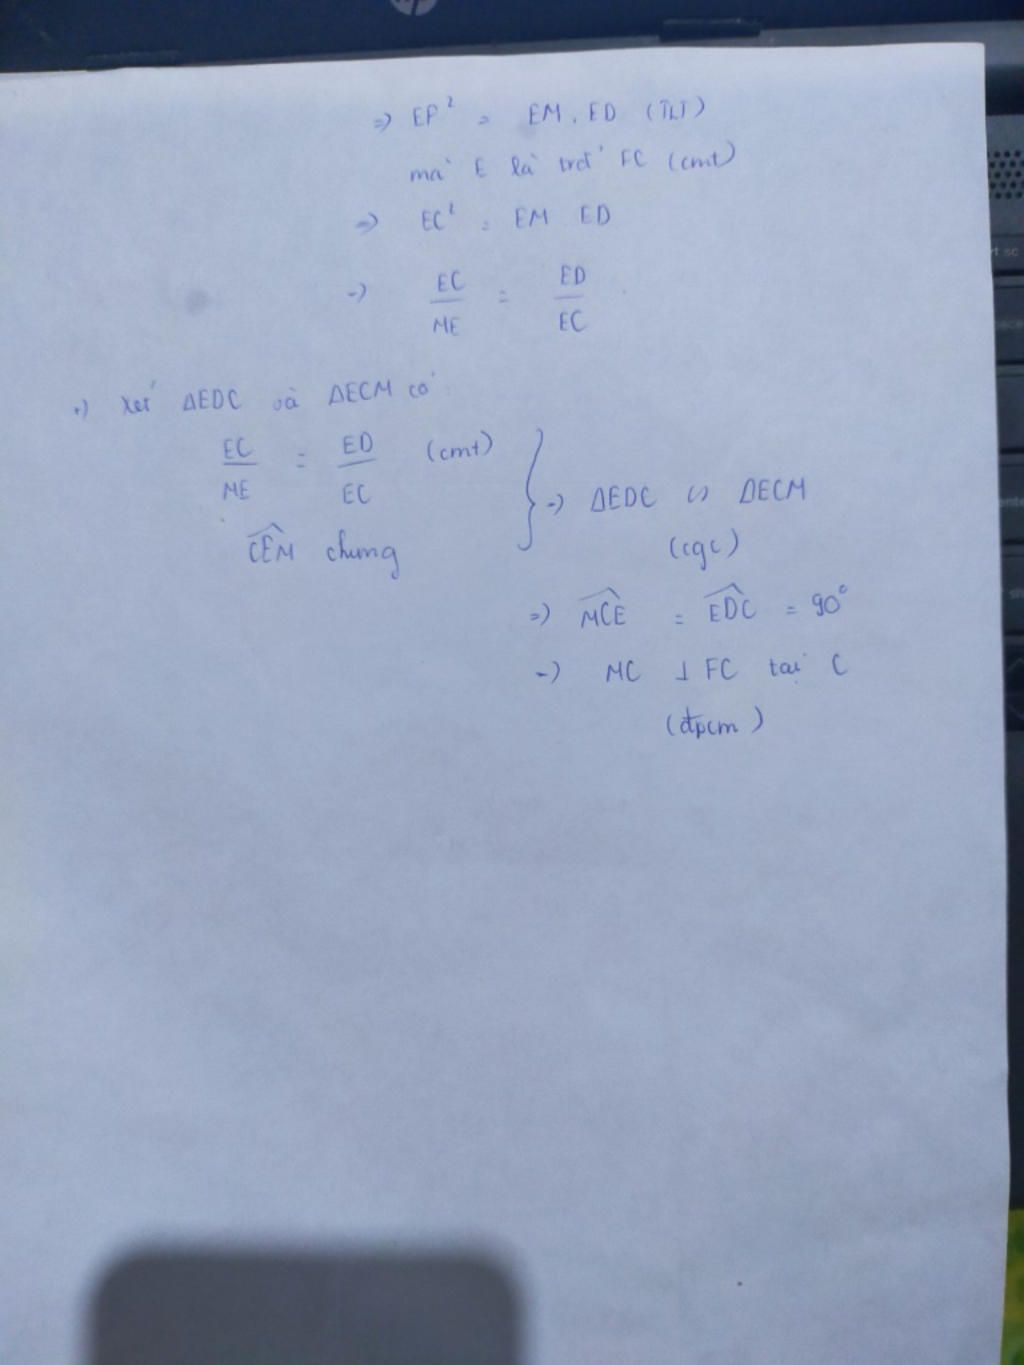 => EF² = EM . ED (TLT)
mà E là trđ' FC (cmt)
=> EC² = EM ED
=> EC/ME = ED/EC
+) Xét ΔEDC và ΔECM có:
EC/ME = ED/EC (cmt)
=> ΔEDC ∽ ΔECM
CEM chung
(cgc)
=> MCE = EDC = 90°
=> MC ⊥ FC tại C
(đpcm)